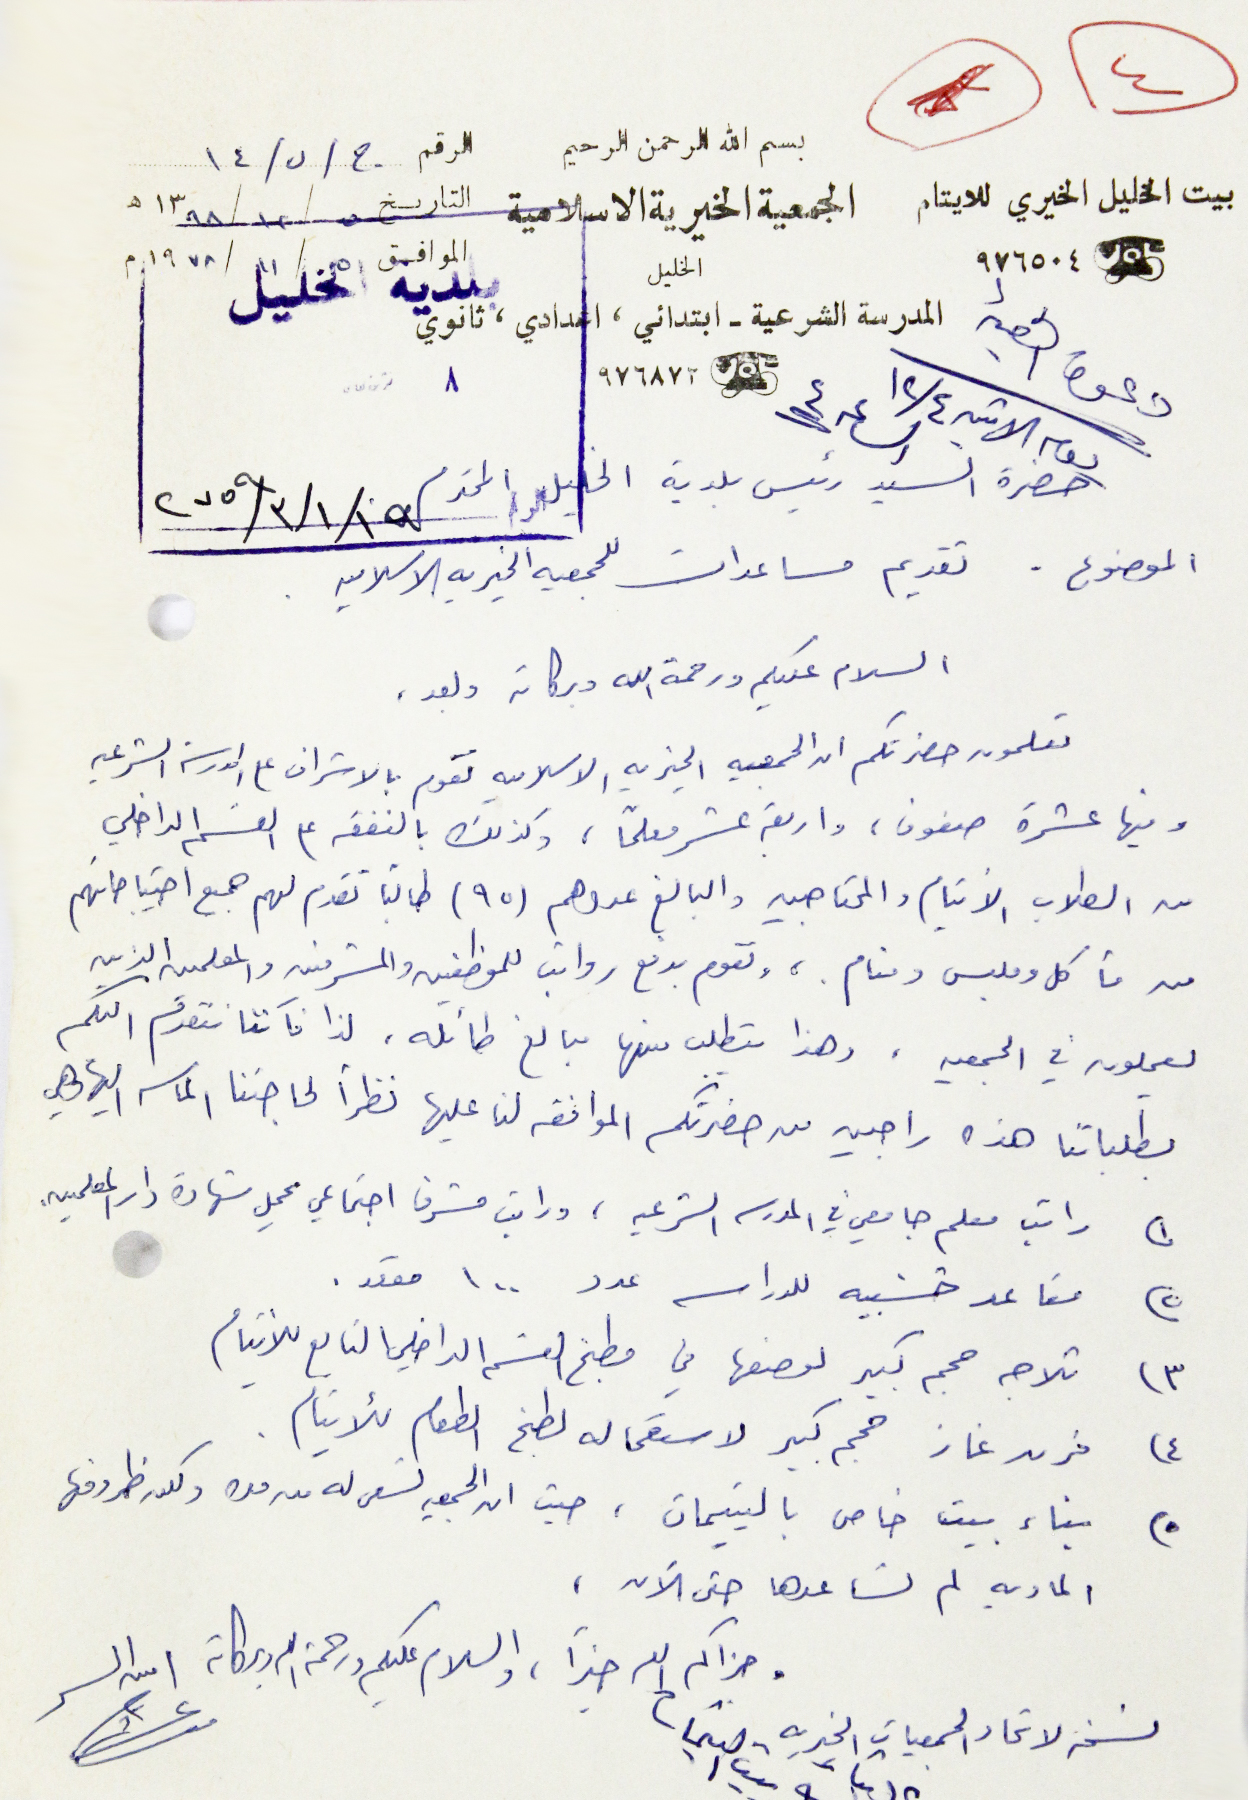 ٤
بسم الله الرحمن الرحيم
الرقم ج / ٧ / ١٤
بيت الخليل الخيري للايتام
الجمعية الخيرية الاسلامية
التاريخ ٥ / ١٢ / ١٣٩٨ هـ
٩٧٦٥٠٤
الخليل
الموافق ٥ / ١١ / ١٩٧٨ م
بلدية الخليل
المدرسة الشرعية - ابتدائي ، اعدادي ، ثانوي
٩٧٦٨٧٢
٨
يوم الاثنين ١٢/٤ الساعة ٤
حضرة السيد رئيس بلدية الخليل المحترم
الموضوع - تقديم مساعدات للجمعيه الخيريه الاسلاميه .
السلام عليكم ورحمة الله وبركاته وبعد ،
تعلمون حضرتكم ان الجمعيه الخيريه الاسلاميه تقوم بالاشراف على المدرسة الشرعيه
وفيها عشرة صفوف ، واربعة عشر معلمًا ، وكذلك بالنفقه على القسم الداخلي
من الطلاب الأيتام والمحتاجين والبالغ عددهم (٩٥) طالبًا تقدم لهم جميع احتياجاتهم
من مأكل وملبس ومنام . ، وتقوم بدفع رواتب للموظفين والمشرفين والمعلمين الذين
يعملون في الجمعيه ، وهذا يتطلب منها مبالغ طائله ، لذا فأننا نتقدم اليكم
بطلباتنا هذه راجين من حضرتكم الموافقه لنا عليها نظراً لحاجتنا الماسه اليها وهي
١) راتب معلم جامعي في المدرسه الشرعيه ، وراتب مشرف اجتماعي يحمل شهادة دار المعلمين .
٢) مقاعد خشبيه للدراسه عدد ١٠٠ مقعد .
٣) ثلاجه حجم كبير لوضعها في مطبخ القسم الداخلي التابع للأيتام
٤) فرن غاز حجم كبير لاستعماله لطبخ الطعام للأيتام .
٥) بناء بيت خاص باليتيمات ، حيث ان الجمعيه تسعى له من مده ولكن ظروفها
الماديه لم تساعدها حتى الآن ،
وجزاكم الله خيراً ، والسلام عليكم ورحمة الله وبركاته امين السر
نسخه لاتحاد الجمعيات الخيريه